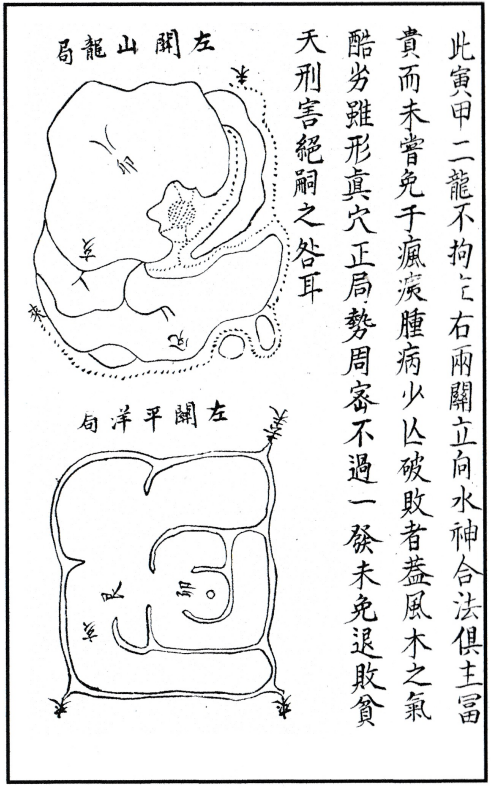 此寅甲二龍不拘左右兩關立向水神合法俱主冨
貴而未嘗免于瘋痰腫病少亾破敗者葢風木之氣
酷劣雖形眞穴正局勢周宻不過一發未免退敗貧
天刑害絕嗣之咎耳
左關山龍局
來
卯
亥
來
左關平洋局
來
卯
艮
亥
來
來